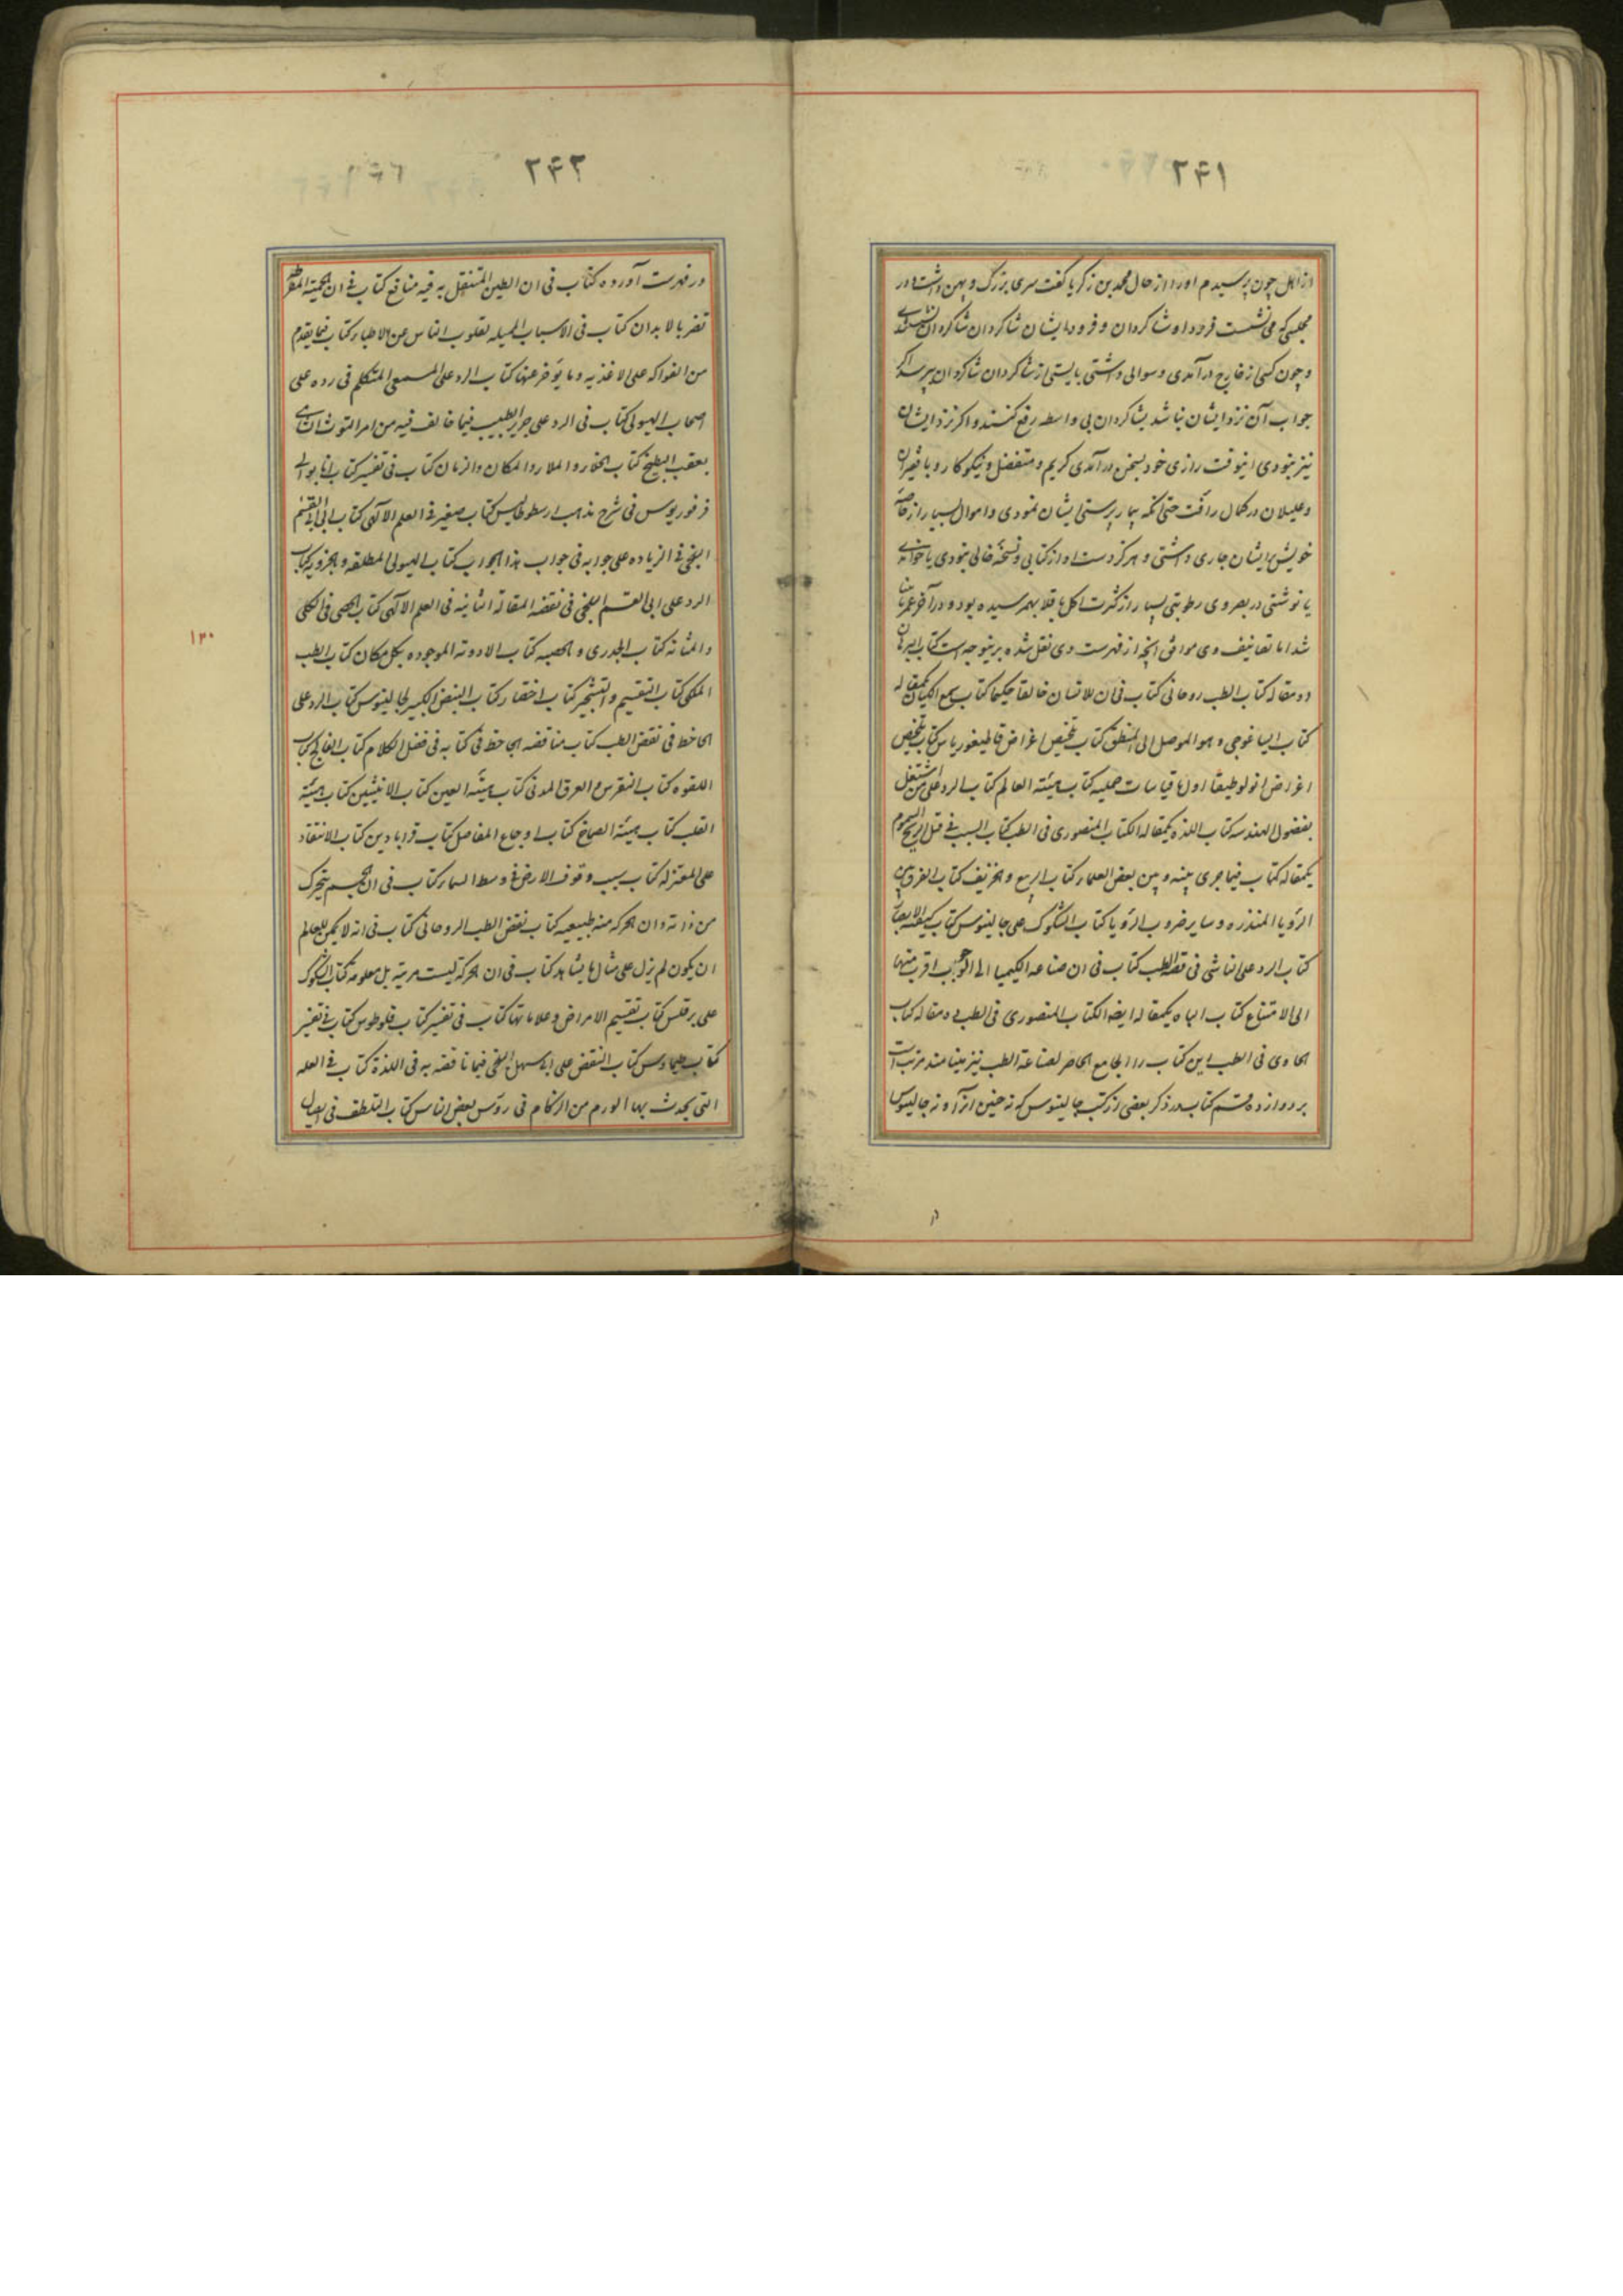 ۲۴۱
از اهل چون پرسیدم او را از حال محمد بن زکریا گفت سری بزرگ و پهن داشت و در
مجلسی که می نشست فرود او شاکردان و فرود ایشان شاکردان شاکردان نشستندی
و چون کسی از خارج درآمدی و سوالی داشتی بایستی از شاکردان شاکردان بپرسد اگر
جواب آن نزد ایشان نباشد بشاکردان بی واسطه رفع کنند و اکر نزد ایشان
نیز نبودی اینوقت رازی خود بسخن درآمدی کریم و متفضل و نیکوکار و با فقیران
و علیلان در کمال رافت حتی انکه بیمار پرستی ایشان نمودی و اموال بسیار از خاصه
خویش بایشان جاری داشتی و هرکز دست او از کتابی و نسخه خالی نبودی یا خواندی
یا نوشتی در بصر وی رطوبتی بسیار از کثرت اکل باقلا بهمرسیده بود و در آخر عمر نابینا
شد اما تصانیف وی موافق انچه از فهرست وی نقل شده برینوجه است کتاب البرهان
دو مقاله کتاب الطب روحانی کتاب فی ان للانسان خالقا حکیما کتاب سمع الکیان یکمقاله
کتاب ایساغوجی و هو الموصل الی المنطق کتاب تلخیص اغراض قاطیغوریاس کتاب تلخیص
اغراض انولوطیقا اولها قیاسات حملیه کتاب هیئة العالم کتاب الرد علی من اشتغل
بفضول الهندسه کتاب اللذه یکمقاله الکتاب المنصوری فی الطب کتاب السبب فی قتل الریح السموم
یکمقاله کتاب فیما جری بینه و بین بعض العلماء کتاب الربیع و الخریف کتاب الفرق بین
الرؤیا المنذره و سایر ضروب الرؤیا کتاب الشکوک علی جالینوس کتاب کیفیة الابصار
کتاب الرد علی الناشی فی نقضه الطب کتاب فی ان صناعه الکیمیا الی الوجوب اقرب منها
الی الامتناع کتاب الباه یکمقاله ایضا الکتاب المنصوری فی الطب ده مقاله کتاب
الحاوی فی الطب این کتاب را الجامع الحاصر لصناعة الطب نیز مینامند مرتب است
بر دوازده قسم کتاب در ذکر بعضی از کتب جالینوس که نه حنین انرا آورده نه جالینوس
۲۴۲
در فهرست آورده کتاب فی ان الطین المتنقل به فیه منافع کتاب فی ان الحمیة المفرطه
تضر بالابدان کتاب فی الاسباب الممیله لقلوب الناس عن الاطباء کتاب فیما یقدم
من الفواکه علی الاغذیه و ما یؤخر عنها کتاب الرد علی المسمعی المتکلم فی رده علی
اصحاب الهیولی کتاب فی الرد علی جریر الطبیب فیما خالف فیه من امر التوث الشامی
بعقب البطیخ کتاب الخلاء و الملاء و المکان و الزمان کتاب فی تفسیر کتاب انابو الی
فرفوریوس فی شرح مذهب ارسطوطالیس کتاب صغیر فی العلم الالهی کتاب الی ابی القسم
البلخی فی الزیاده علی جوابه فی جواب هذا الجواب کتاب الهیولی المطلقه و الجزویه کتاب
الرد علی ابی القسم البلخی فی نقضه المقالة الثانیه فی العلم الالهی کتاب الحصی فی الکلی
و المثانه کتاب الجدری و الحصبه کتاب الادویة الموجوده بکل مکان کتاب الطب
الملکی کتاب التقسیم و التشجیر کتاب اختصار کتاب النبض الکبیر لجالینوس کتاب الرد علی
الجاحظ فی نقض الطب کتاب مناقضه الجاحظ فی کتابه فی فضل الکلام کتاب الفالج کتاب
اللقوه کتاب النقرس و العرق المدنی کتاب هیئة العین کتاب الانثیین کتاب هیئة
القلب کتاب هیئة الصماخ کتاب اوجاع المفاصل کتاب قرابادین کتاب الانتقاد
علی المعتزله کتاب سبب وقوف الارض فی وسط السماء کتاب فی ان الجسم یتحرک
من ذاته و ان الحرکه منه طبیعیه کتاب نقض الطب الروحانی کتاب فی انه لا یمکن للعالم
ان یکون لم یزل علی مثال ما یشاهد کتاب فی ان الحرکة لیست مرئیة بل معلومه کتاب الشکوک
علی برقلس کتاب تقسیم الامراض و علاماتها کتاب فی تفسیر کتاب فلوطوس کتاب فی تفسیر
کتاب طیماوس کتاب النقض علی ابی سهل البلخی فیما ناقضه به فی اللذة کتاب فی العله
التی یحدث بها الورم من الزکام فی رؤس بعض الناس کتاب التلطف فی ایصال
۱۳۰